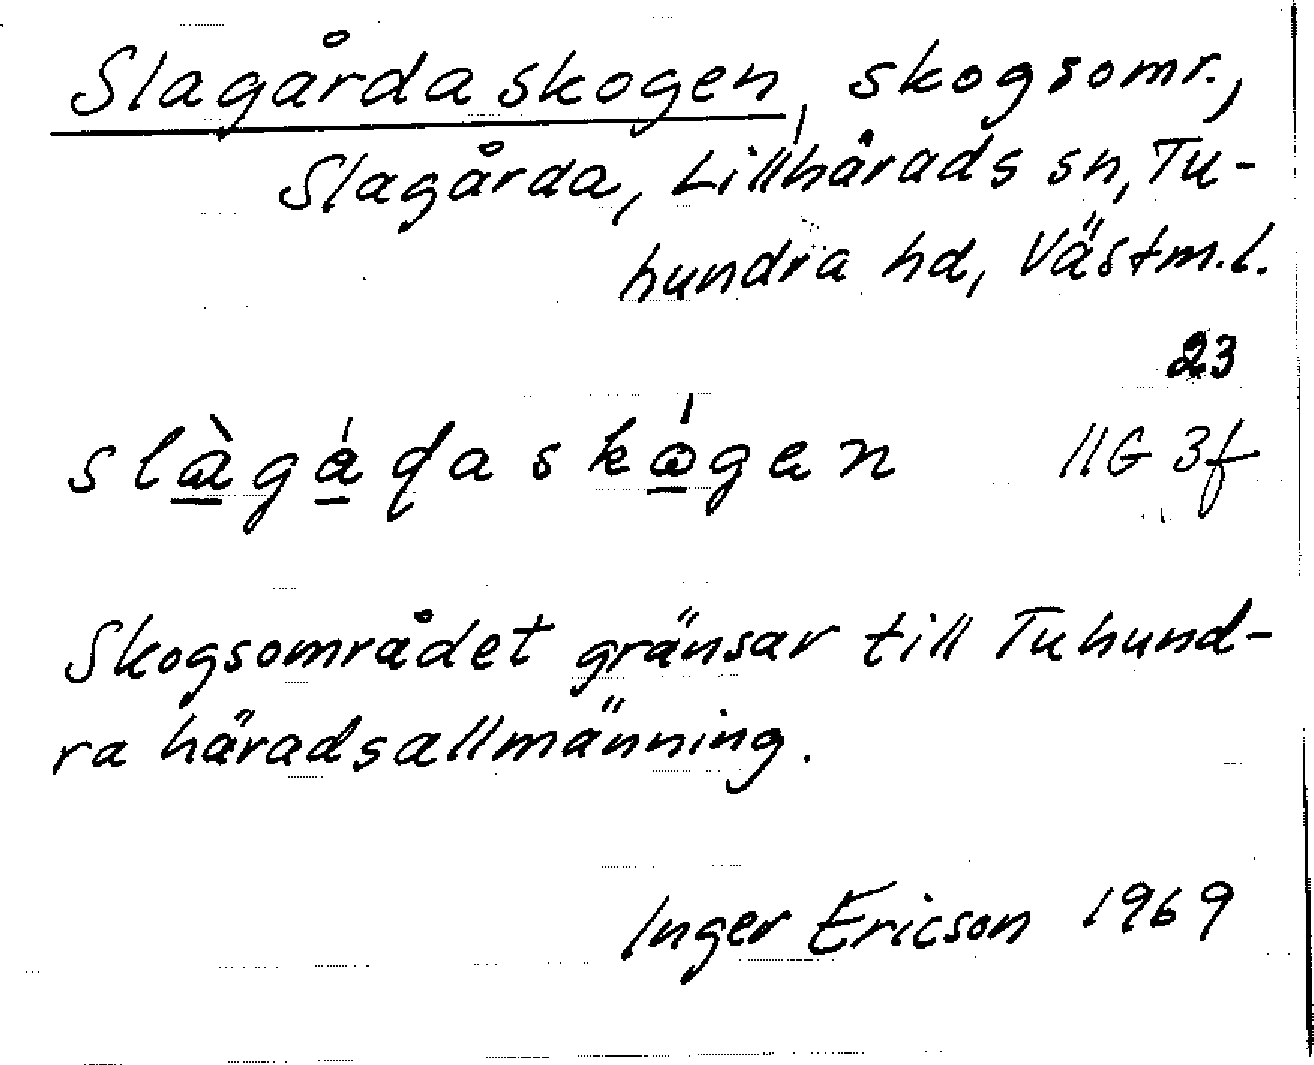 Slagårdaskogen, skogsomr.,
Slagårda, Lillhärads sn, Tu-
hundra hd, Västm.l.
23
11G 3f
Skogsområdet gränsar till Tuhund-
ra häradsallmänning.
Inger Ericson 1969